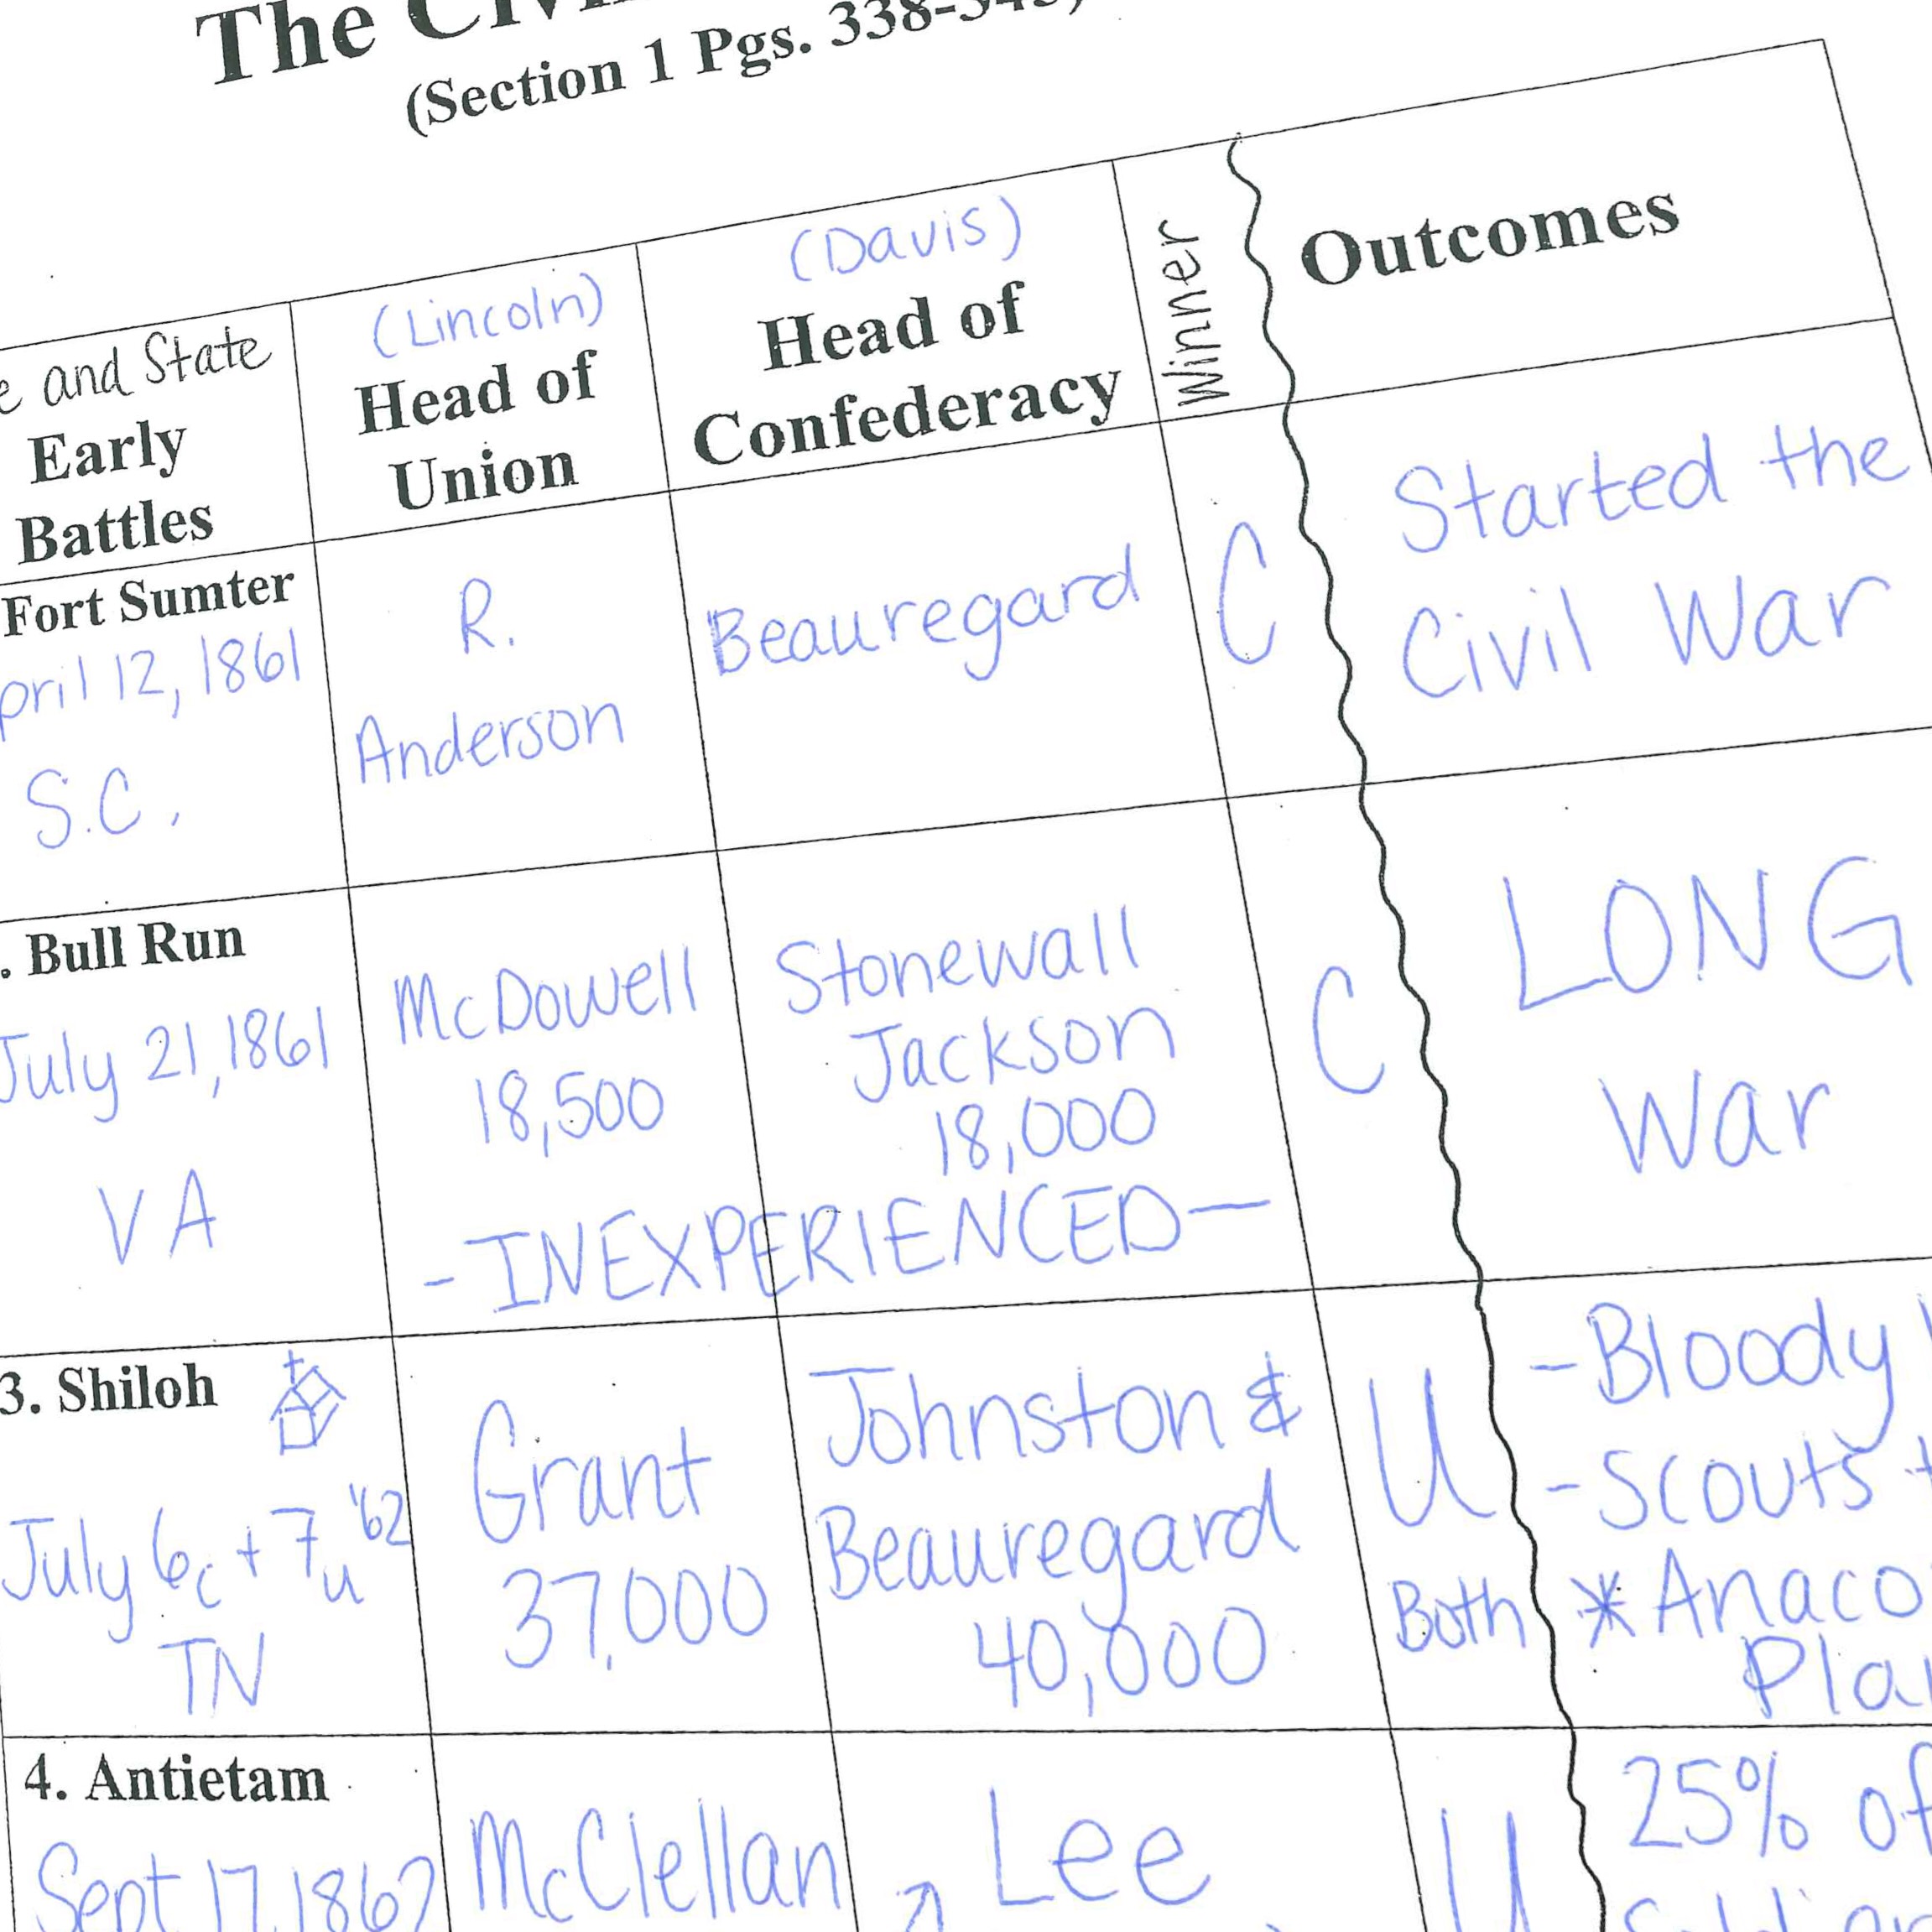 The
(Section 1 Pgs. 338-
and State
Early
Battles
(Lincoln)
Head of
Union
(Davis)
Head of
Confederacy
Winner
Outcomes
Fort Sumter
pril 12, 1861
S.C.
R.
Anderson
Beauregard
C
Started the
Civil War
. Bull Run
July 21, 1861
VA
McDowell
18,500
Stonewall
Jackson
18,000
- INEXPERIENCED -
C
LONG
War
3. Shiloh
July 6c + 7u '62
TN
Grant
37,000
Johnston &
Beauregard
40,000
U
Both
- Bloody
- Scouts
* Anaco
Pla
4. Antietam
Sept 17, 1862
McClellan
Lee
U
25% of